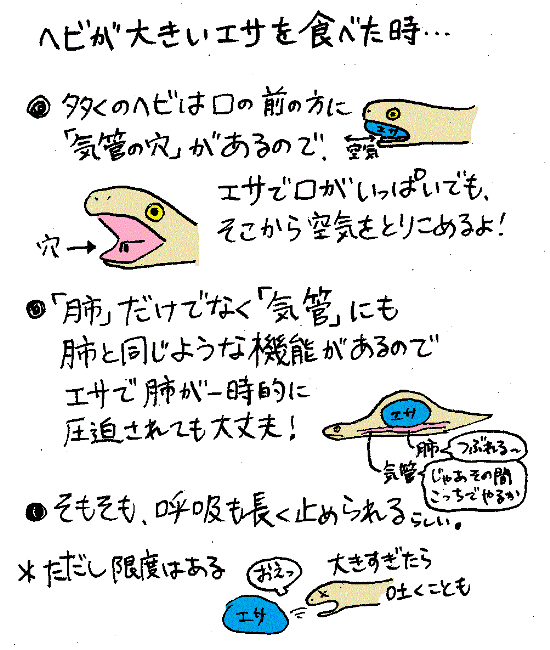 ヘビが大きいエサを食べた時…
● 多くのヘビは口の前の方に
「気管の穴」があるので、
エサ
空気
エサで口がいっぱいでも、
そこから空気をとりこめるよ！
穴→
● 「肺」だけでなく「気管」にも
肺と同じような機能があるので
エサで肺が一時的に
圧迫されても大丈夫！
エサ
肺
つぶれる〜
気管
じゃあその間
こっちでやるか
● そもそも、呼吸も長く止められるらしい。
＊ただし限度はある
おえっ
エサ
大きすぎたら
吐くことも